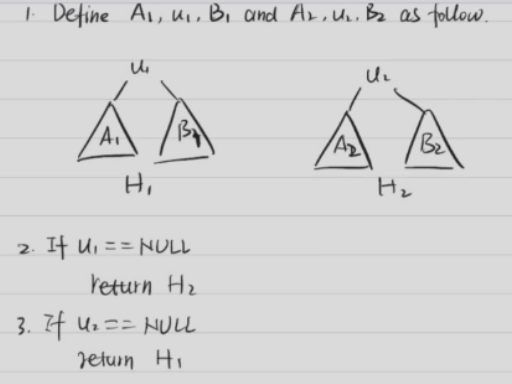 1. Define A₁, u₁, B₁ and A₂, u₂, B₂ as follow.
u₁ u₂
A₁ B₁ A₂ B₂
H₁ H₂
2. If u₁ == NULL
return H₂
3. If u₂ == NULL
return H₁